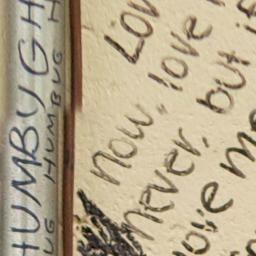 HUMBUGH
UG HUMBUG H
Lov
now, love
never, but if
love me